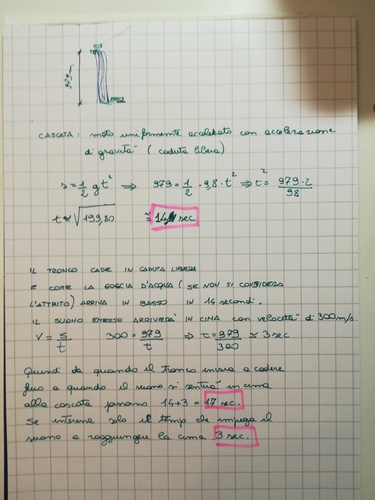 979 m
CASCATA : moto uniformemente accelerato con accelerazione
di gravità (caduta libera)
s = 1/2 g t² ⇒ 979 = 1/2 · 9,8 · t² ⇒ t² = 979·2/98
t ≈ √199,80 ≅ 14 sec
IL TRONCO CADE IN CADUTA LIBERA
E COME LA GOCCIA D'ACQUA (SE NON SI CONSIDERA
L'ATTRITO) ARRIVA IN BASSO IN 14 secondi.
IL SUONO EMESSO ARRIVERÀ IN CIMA con velocità di 300 m/s
V = s/t 300 = 979/t ⇒ t = 979/300 ≅ 3 sec
Quindi da quando il tronco inizia a cadere
fino a quando il suono si sentirà in cima
alla cascata passano 14+3 = 17 sec.
Se interessa solo il tempo che impiega il
suono a raggiungere la cima 3 sec.